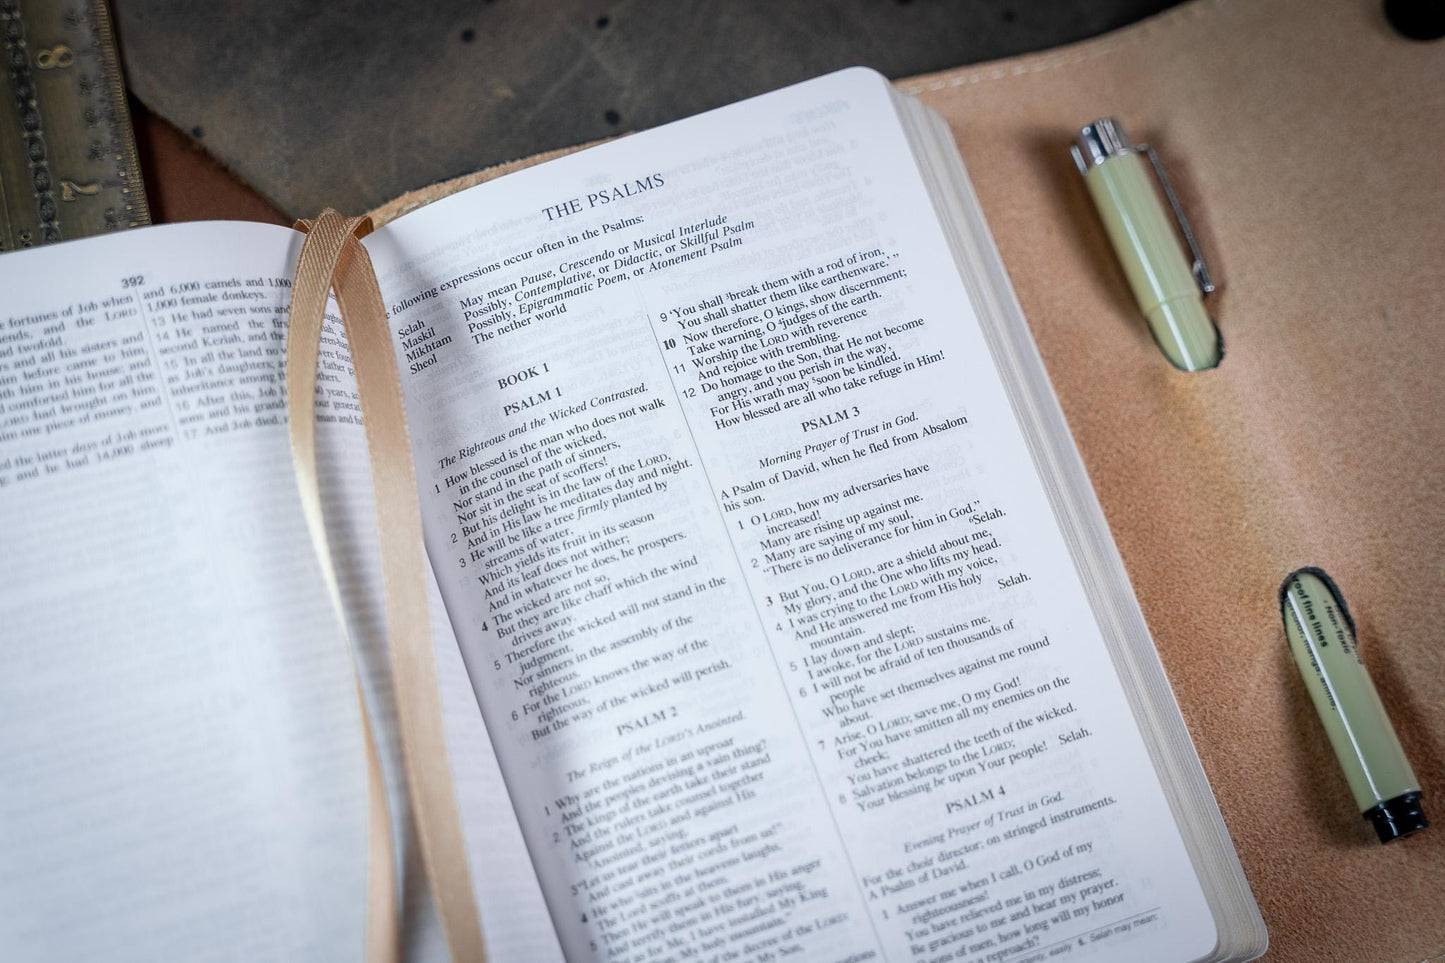 8
7
392
e fortunes of Job when
ends, and the LORD
twofold.
and all his sisters and
him before came to him,
th him in his house; and
comforted him for all the
LORD had brought on him
him one piece of money, and
ed the latter days of Job more
and he had 14,000 sheep
and 6,000 camels and 1,000
1,000 female donkeys.
13 He had seven sons and
14 He named the firs
second Keziah, and the
15 In all the land no were foun
as Job's daughters; father g
inheritance among others.
16 After this, Job years, an
sons and his grand four genera
17 And Job died, man and ful
THE PSALMS
following expressions occur often in the Psalms:
Selah May mean Pause, Crescendo or Musical Interlude
Maskil Possibly, Contemplative, or Didactic, or Skillful Psalm
Mikhtam Possibly, Epigrammatic Poem, or Atonement Psalm
Sheol The nether world
BOOK 1
PSALM 1
The Righteous and the Wicked Contrasted.
1 How blessed is the man who does not walk
in the counsel of the wicked,
Nor stand in the path of sinners,
Nor sit in the seat of scoffers!
2 But his delight is in the law of the LORD,
And in His law he meditates day and night.
3 He will be like a tree firmly planted by
streams of water,
Which yields its fruit in its season
And its leaf does not wither;
And in whatever he does, he prospers.
4 The wicked are not so,
But they are like chaff which the wind
drives away.
5 Therefore the wicked will not stand in the
judgment,
Nor sinners in the assembly of the
righteous.
6 For the LORD knows the way of the
righteous,
But the way of the wicked will perish.
PSALM 2
The Reign of the LORD'S Anointed.
1 Why are the nations in an uproar
And the peoples devising a vain thing?
2 The kings of the earth take their stand
And the rulers take counsel together
Against the LORD and against His
Anointed, saying,
3 "Let us tear their fetters apart
And cast away their cords from us!"
4 He who sits in the heavens laughs,
The Lord scoffs at them.
5 Then He will speak to them in His anger
And terrify them in His fury, saying,
"But as for Me, I have installed My King
Upon Zion, My holy mountain."
of the decree of the LORD:
My Son,
9 'You shall break them with a rod of iron,
You shall shatter them like earthenware.'"
10 Now therefore, O kings, show discernment;
Take warning, O judges of the earth.
11 Worship the LORD with reverence
And rejoice with trembling.
12 Do homage to the Son, that He not become
angry, and you perish in the way,
For His wrath may soon be kindled.
How blessed are all who take refuge in Him!
PSALM 3
Morning Prayer of Trust in God.
A Psalm of David, when he fled from Absalom
his son.
1 O LORD, how my adversaries have
increased!
Many are rising up against me.
2 Many are saying of my soul,
"There is no deliverance for him in God." Selah.
3 But You, O LORD, are a shield about me,
My glory, and the One who lifts my head.
4 I was crying to the LORD with my voice,
And He answered me from His holy
mountain. Selah.
5 I lay down and slept;
I awoke, for the LORD sustains me.
6 I will not be afraid of ten thousands of
people
Who have set themselves against me round
about.
7 Arise, O LORD; save me, O my God!
For You have smitten all my enemies on the
cheek;
You have shattered the teeth of the wicked.
8 Salvation belongs to the LORD;
Your blessing be upon Your people! Selah.
PSALM 4
Evening Prayer of Trust in God.
For the choir director; on stringed instruments.
A Psalm of David.
1 Answer me when I call, O God of my
righteousness!
You have relieved me in my distress;
Be gracious to me and hear my prayer.
O sons of men, how long will my honor
a reproach?
easily 6. Selah may mean:
roof fine lines
Non-Toxic
manga, anime,